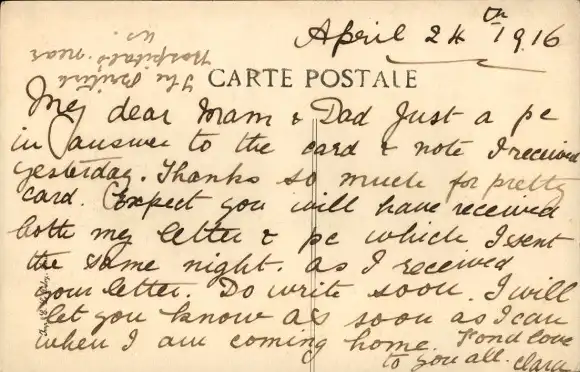 April 24th 1916
The British
hospitals near
us.
CARTE POSTALE
My dear Mam & Dad Just a pc
in answer to the card & note I received
yesterday. Thanks so much for pretty
card. Expect you will have received
both my letter & pc which I sent
the same night. as I received
your letter. Do write soon. I will
let you know as soon as I can
when I am coming home. Fond love
to you all. Clara